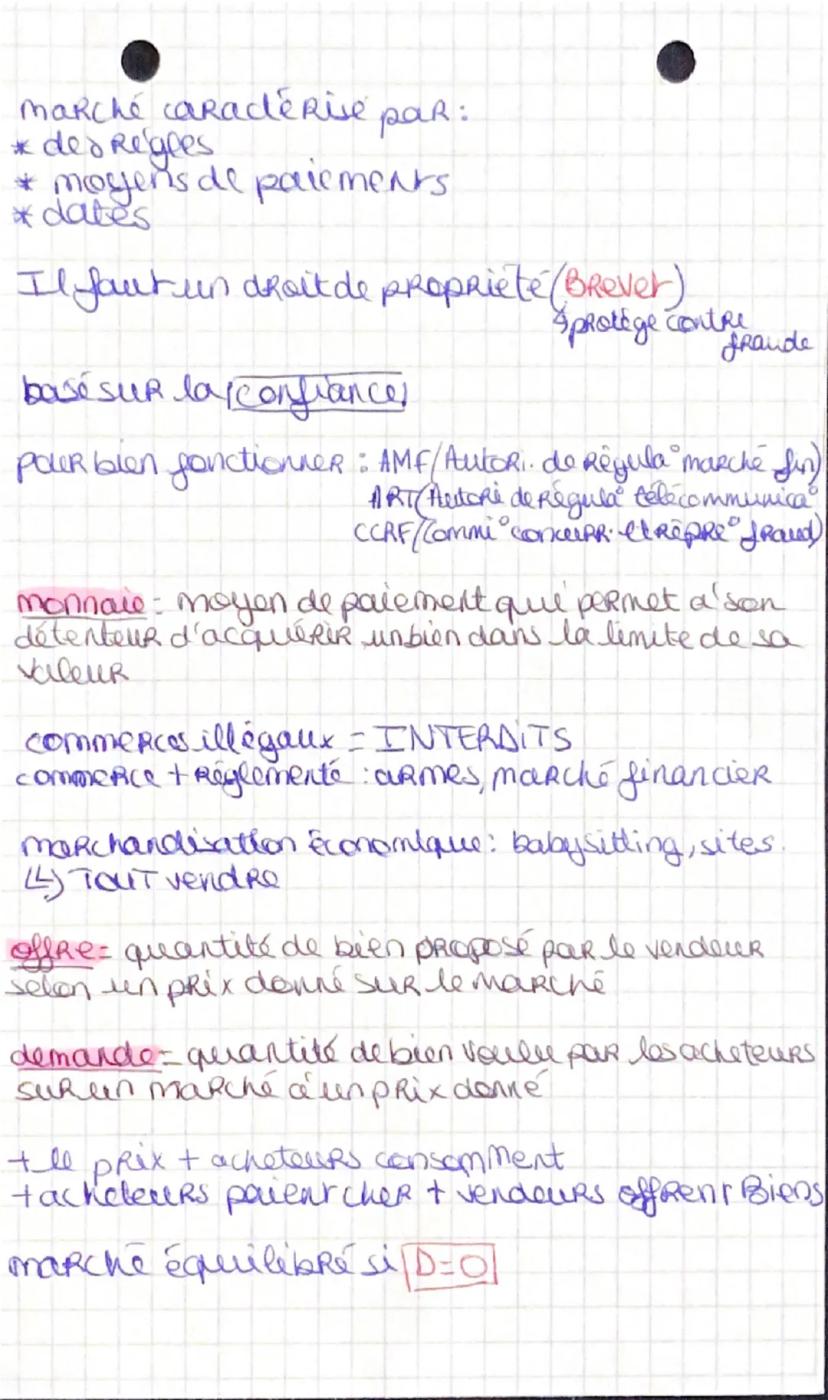 marché caractérisé par :
* des règles
* moyens de paiements
* dates
Il faut un droit de propriété (Brevet)
↳ protège contre
fraude
basé sur la confiance
pour bien fonctionner : AMF (Autori. de Régula° marché fin)
ART (Autori de Régula° télécommunica°
CCRF (Commi° concurr. et répre° fraud)
monnaie = moyen de paiement qui permet à son
détenteur d'acquérir un bien dans la limite de sa
valeur
commerces illégaux = INTERDITS
commerce + réglementé : armes, marché financier
marchandisation économique : babysitting, sites.
(↳) TOUT vendre
offre = quantité de bien proposé par le vendeur
selon un prix donné sur le marché
demande = quantité de bien voulu par les acheteurs
sur un marché à un prix donné
+ le prix + acheteurs consomment
+ acheteurs paient cher + vendeurs offrent Biens
marché équilibré si D=O